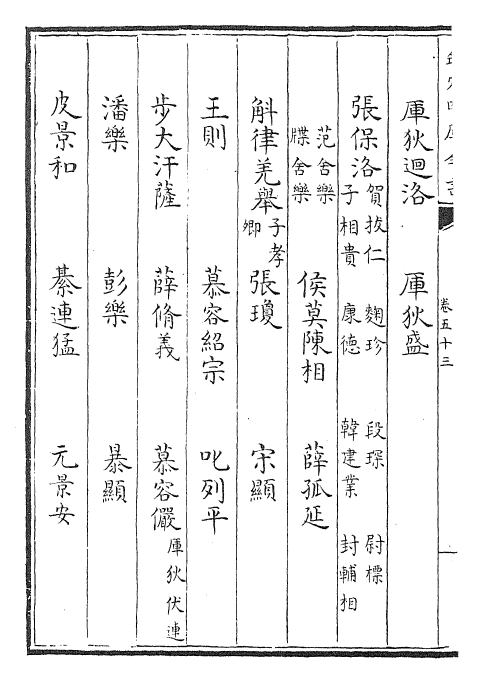 欽定四庫全書
卷五十三
厙狄迴洛 厙狄盛
張保洛 賀拔仁 麴珍 段琛 尉標
子相貴 康德 韓建業 封輔相
范舍樂
牒舍樂 侯莫陳相 薛孤延
斛律羌舉 子孝卿 張瓊 宋顯
王則 慕容紹宗 叱列平
步大汗薩 薛脩義 慕容儼 厙狄伏連
潘樂 彭樂 暴顯
皮景和 綦連猛 元景安